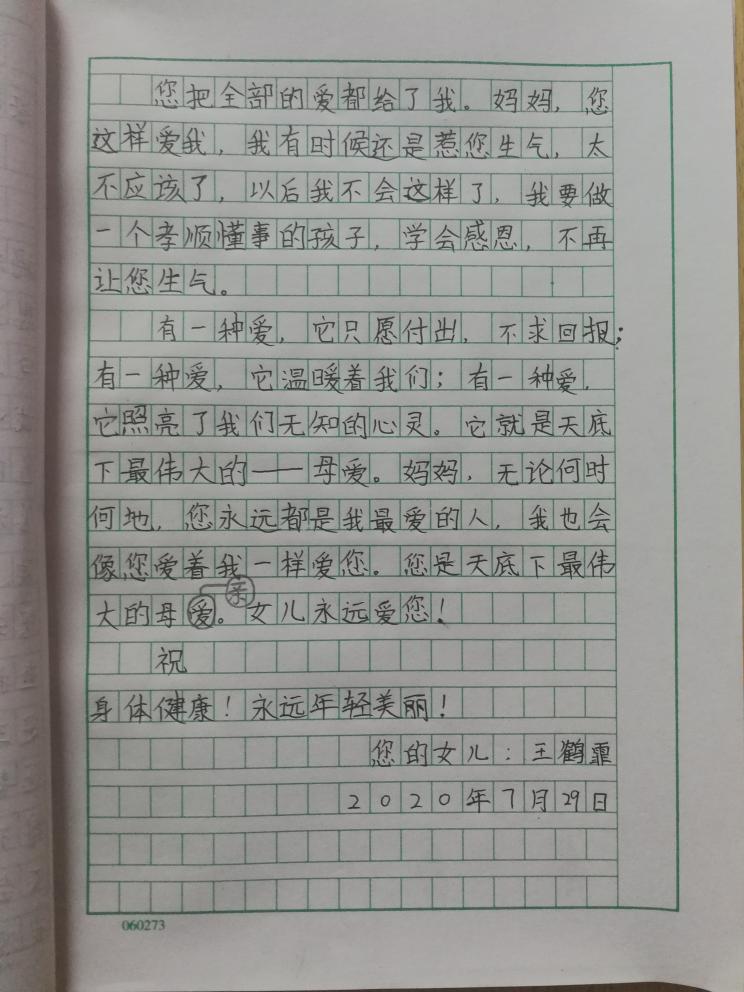 您把全部的爱都给了我。妈妈，您
这样爱我，我有时候还是惹您生气，太
不应该了，以后我不会这样了，我要做
一个孝顺懂事的孩子，学会感恩，不再
让您生气。
有一种爱，它只愿付出，不求回报；
有一种爱，它温暖着我们；有一种爱，
它照亮了我们无知的心灵。它就是天底
下最伟大的——母爱。妈妈，无论何时
何地，您永远都是我最爱的人，我也会
像您爱着我一样爱您。您是天底下最伟
亲
大的母爱。女儿永远爱您！
祝
身体健康！永远年轻美丽！
您的女儿：王鹤霏
2020年7月29日
060273